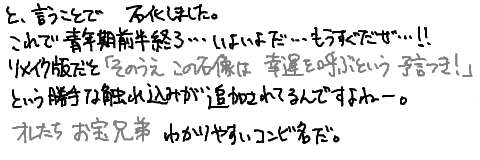 と、言うことで 石化しました。
これで青年期前半終了…いよいよだ…もうすぐだぜ…!!
リメイク版だと「そのうえ この石像は 幸運を呼ぶという 予言つき!」
という勝手な触れ込みが追加されてるんですよねー。
オレたち お宝兄弟 わかりやすいコンビ名だ。